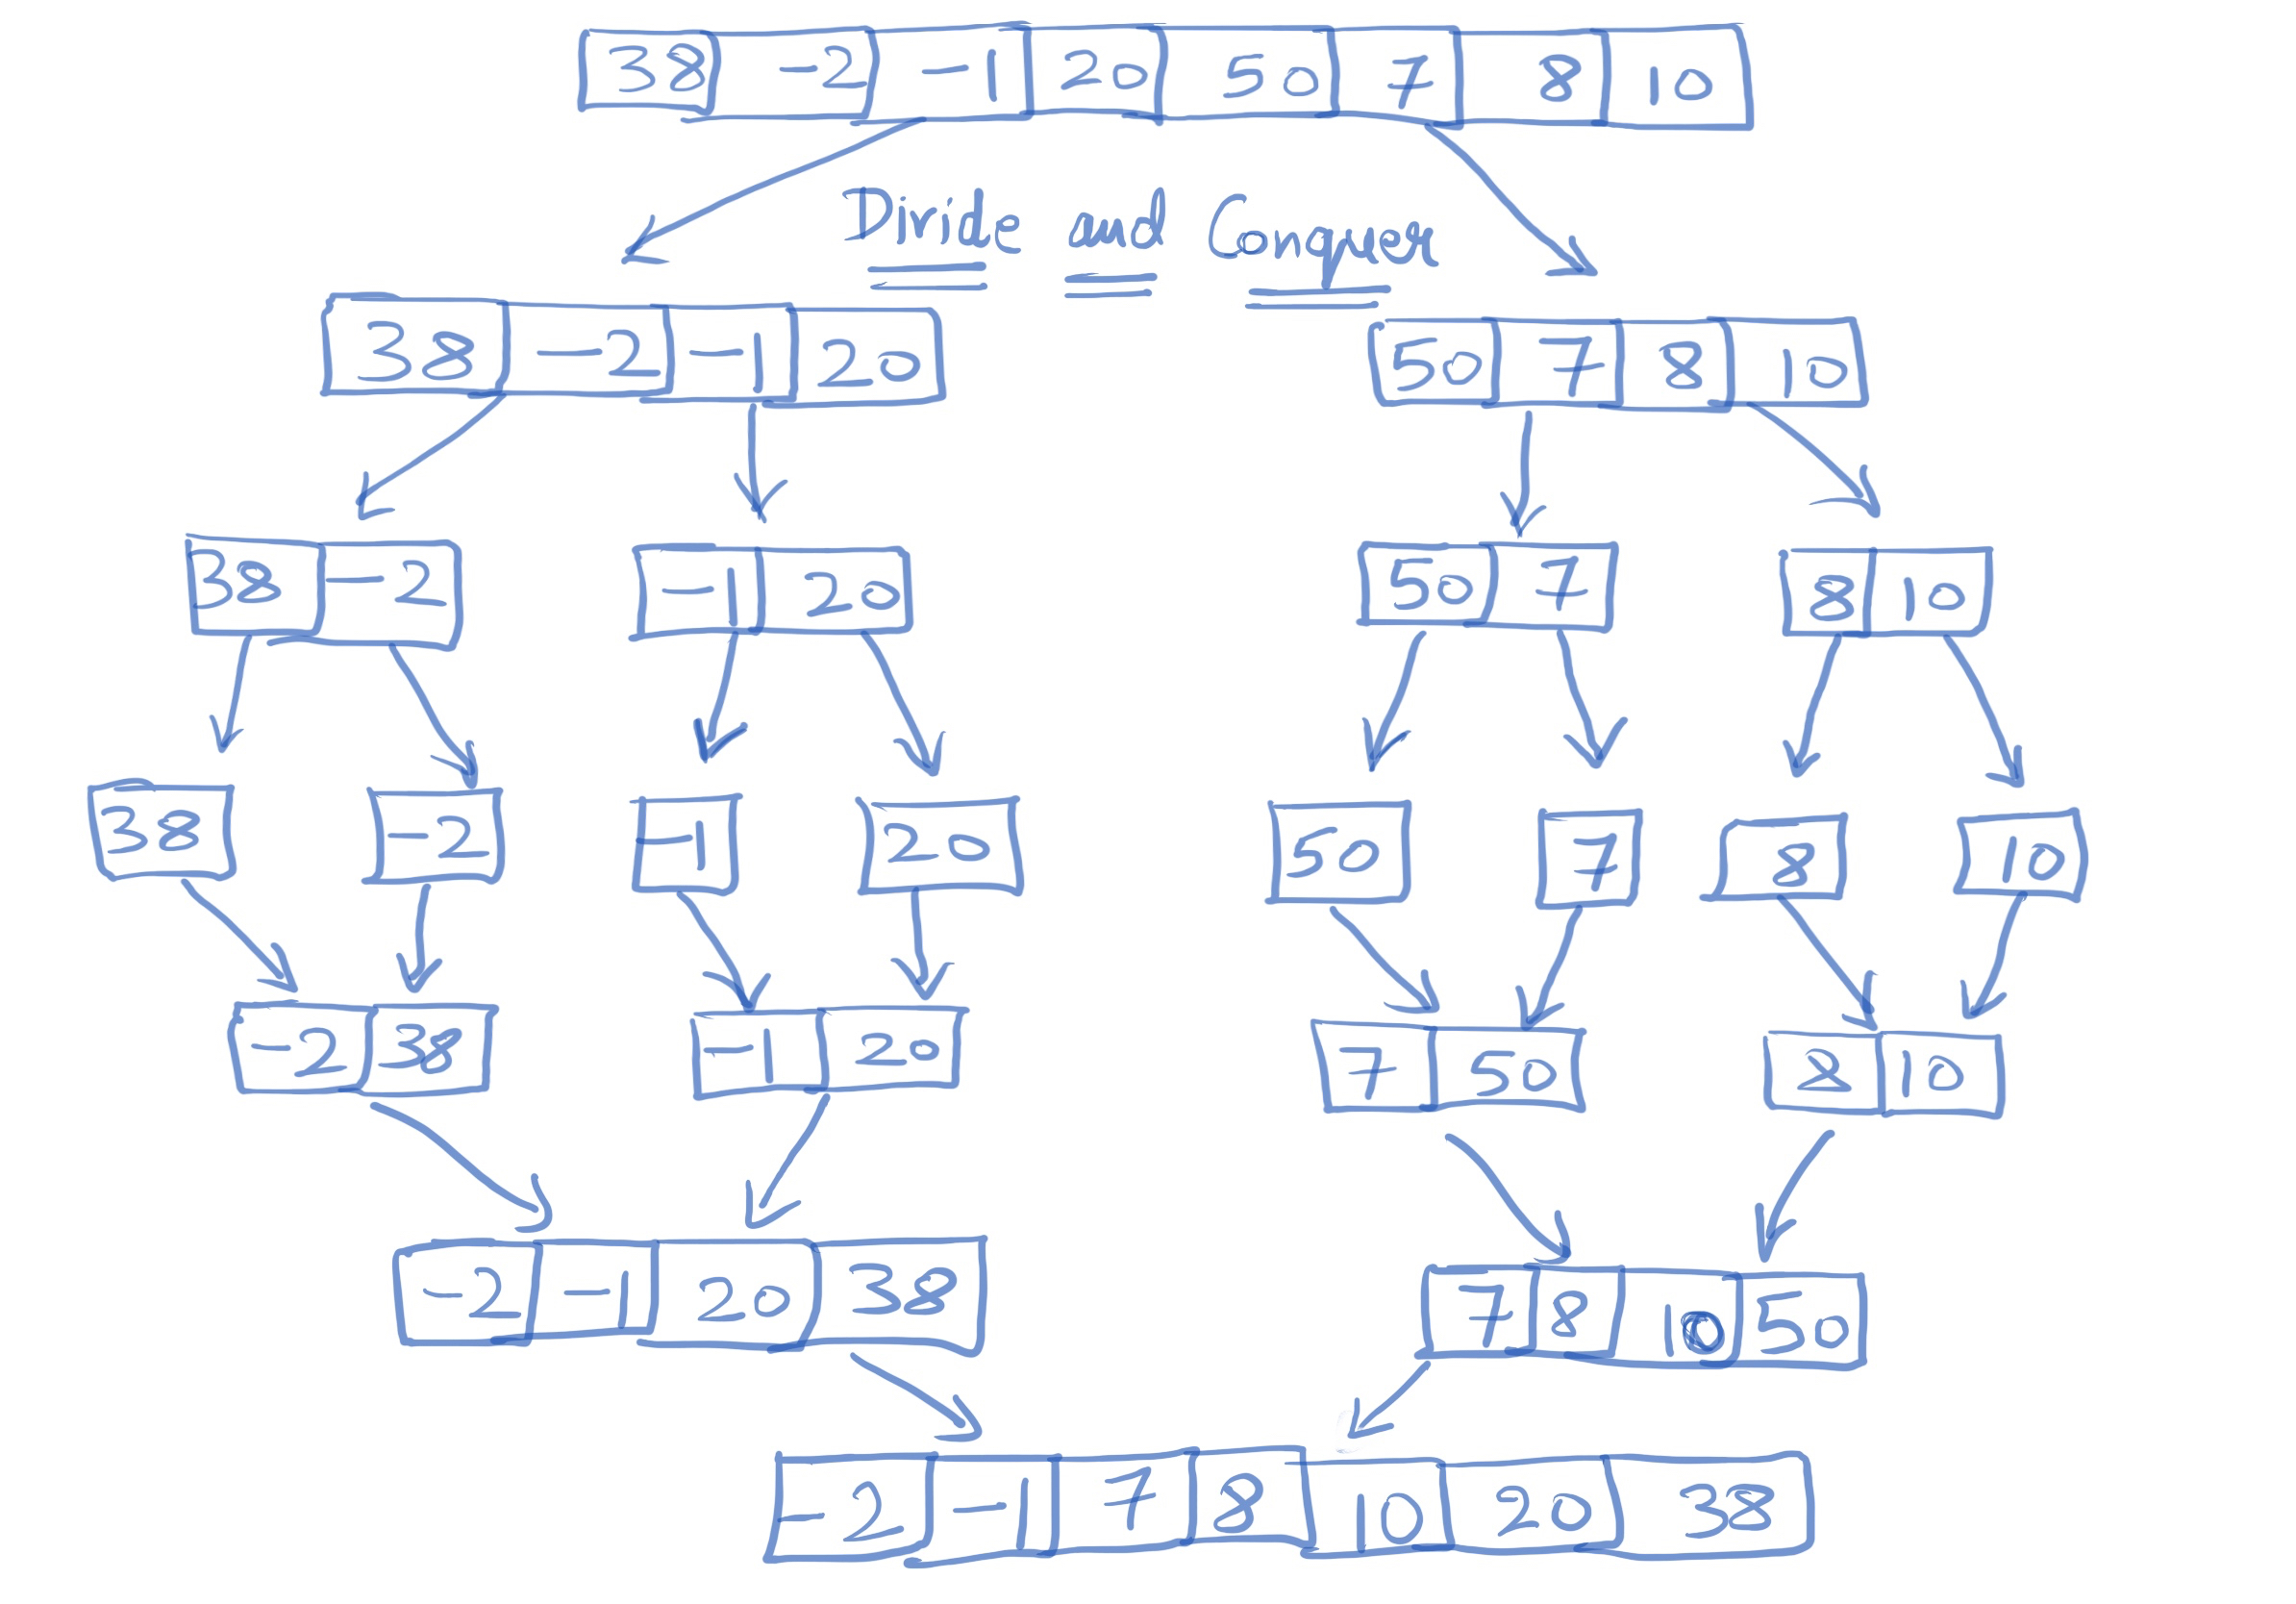 38 -2 -1 20 50 7 8 10
Divide and Conquer
38 -2 -1 20
50 7 8 10
38 -2
-1 20
50 7
8 10
38
-2
-1
20
50
7
8
10
-2 38
-1 20
7 50
8 10
-2 -1 20 38
7 8 10 50
-2 -1 7 8 10 20 38